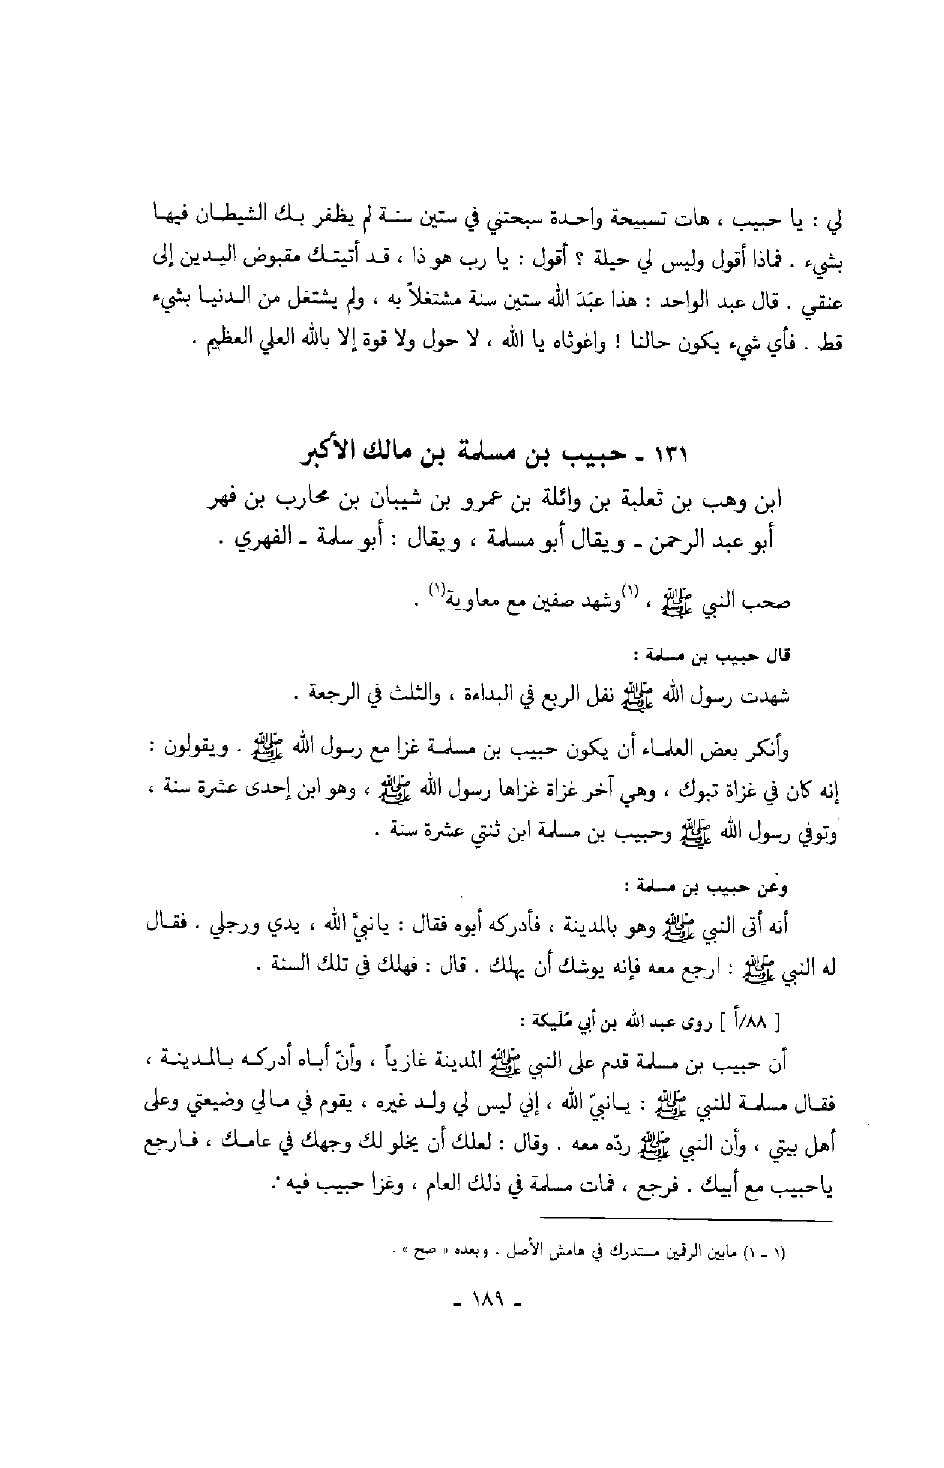 لي : يا حبيب ، هات تسبيحة واحدة سبحتني في ستين سنة لم يظفر بك الشيطان فيها
بشيء . فماذا أقول وليس لي حيلة ؟ أقول : يا رب هو ذا ، قد أتيتك مقبوض اليدين إلى
عنقي . قال عبد الواحد : هذا عَبَدَ الله ستين سنة مشتغلاً به ، ولم يشتغل من الدنيا بشيء
قط . فأي شيء يكون حالنا ! واغوثاه يا الله ، لا حول ولا قوة إلا بالله العلي العظيم .
١٣١ ـ حبيب بن مسلمة بن مالك الأكبر
ابن وهب بن ثعلبة بن وائلة بن عمرو بن شيبان بن محارب بن فهر
أبو عبد الرحمن ـ ويقال أبو مسلمة ، ويقال : أبو سلمة ـ الفهري .
صحب النبي ﷺ ، (١)وشهد صفين مع معاوية(١) .
قال حبيب بن مسلمة :
شهدت رسول الله ﷺ نفل الربع في البداءة ، والثلث في الرجعة .
وأنكر بعض العلماء أن يكون حبيب بن مسلمة غزا مع رسول الله ﷺ . ويقولون :
إنه كان في غزاة تبوك ، وهي آخر غزاة غزاها رسول الله ﷺ ، وهو ابن إحدى عشرة سنة ،
وتوفي رسول الله ﷺ وحبيب بن مسلمة ابن ثنتي عشرة سنة .
وعن حبيب بن مسلمة :
أنه أتى النبي ﷺ وهو بالمدينة ، فأدركه أبوه فقال : يانبيَّ الله ، يدي ورجلي . فقال
له النبي ﷺ : ارجع معه فإنه يوشك أن يهلك . قال : فهلك في تلك السنة .
[ ٨٨/أ ] روى عبد الله بن أبي مُليكة :
أن حبيب بن مسلمة قدم على النبي ﷺ المدينة غازياً ، وأنّ أباه أدركه بالمدينة ،
فقال مسلمة للنبي ﷺ : يانبيّ الله ، إني ليس لي ولد غيره ، يقوم في مالي وضيعتي وعلى
أهل بيتي ، وأن النبي ﷺ ردّه معه . وقال : لعلك أن يخلو لك وجهك في عامك ، فارجع
ياحبيب مع أبيك . فرجع ، فمات مسلمة في ذلك العام ، وغزا حبيب فيه .
(١ ـ ١) مابين الرقمين مستدرك في هامش الأصل . وبعده « صح » .
ـ ١٨٩ ـ